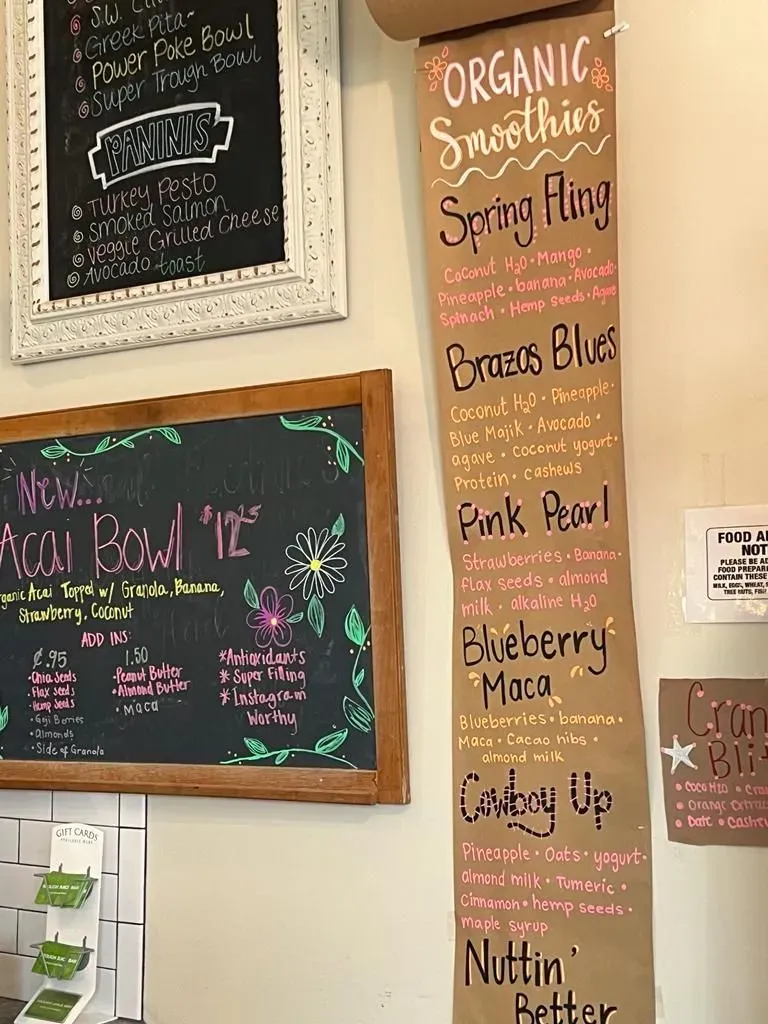 S.W.
Greek Pita~
Power Poke Bowl
Super Trough Bowl
PANINIS
Turkey Pesto
Smoked Salmon
Veggie Grilled Cheese
Avocado toast
New...
Acai Bowl $12.5
Organic Acai Topped w/ Granola, Banana,
Strawberry, Coconut
ADD INS:
¢.95
Chia Seeds
Flax Seeds
Hemp Seeds
Goji Berries
Almonds
Side of Granola
1.50
Peanut Butter
Almond Butter
Maca
*Antioxidants
*Super Filling
*Instagram
Worthy
GIFT CARDS
AVAILABLE HERE
ORGANIC
Smoothies
Spring Fling
Coconut H2O • Mango •
Pineapple • banana • Avocado •
Spinach • Hemp seeds • Agave
Brazos Blues
Coconut H2O • Pineapple •
Blue Majik • Avocado •
agave • Coconut yogurt •
Protein • cashews
Pink Pearl
Strawberries • Banana •
flax seeds • almond
milk • alkaline H2O
Blueberry
Maca
Blueberries • banana •
Maca • Cacao nibs •
almond milk
Cowboy Up
Pineapple • Oats • yogurt •
almond milk • Tumeric •
Cinnamon • hemp seeds •
maple syrup
Nuttin'
Better
FOOD A
NOT
PLEASE BE AD
FOOD PREPAR
CONTAIN THESE
MILK, EGGS, WHEAT, S
TREE NUTS, FISH
Cran
Bli
• Coco H2O • Cra
• Orange
• Date • Cashew